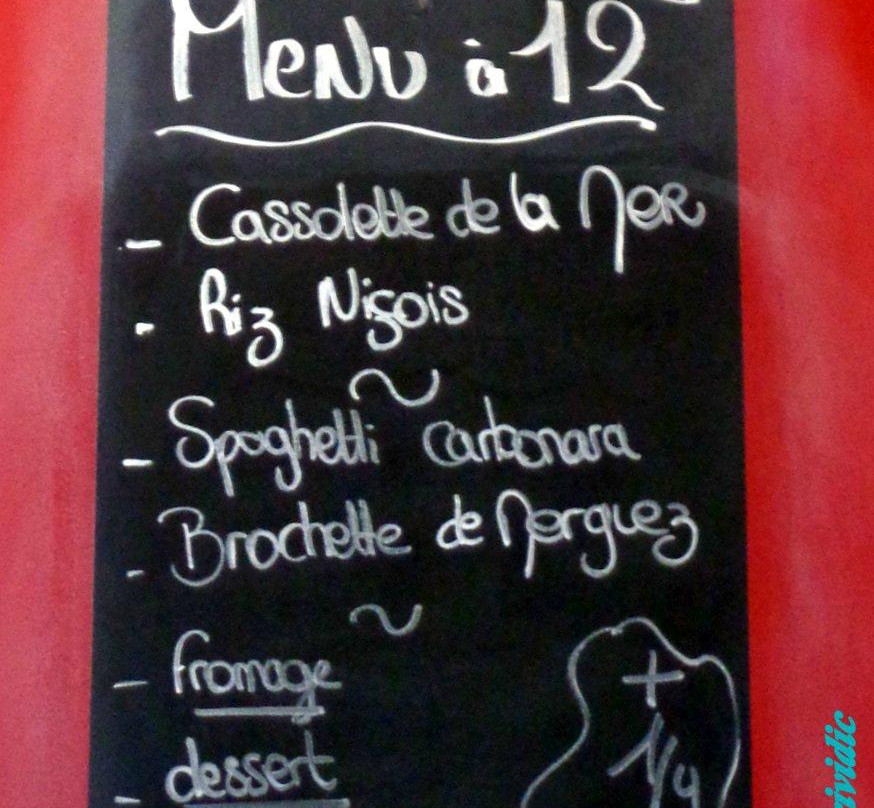 Menu à 12
- Cassolette de la Mer
- Riz Niçois
~
- Spaghetti carbonara
- Brochette de Merguez
~
- fromage
- dessert
+
1/4
ividic